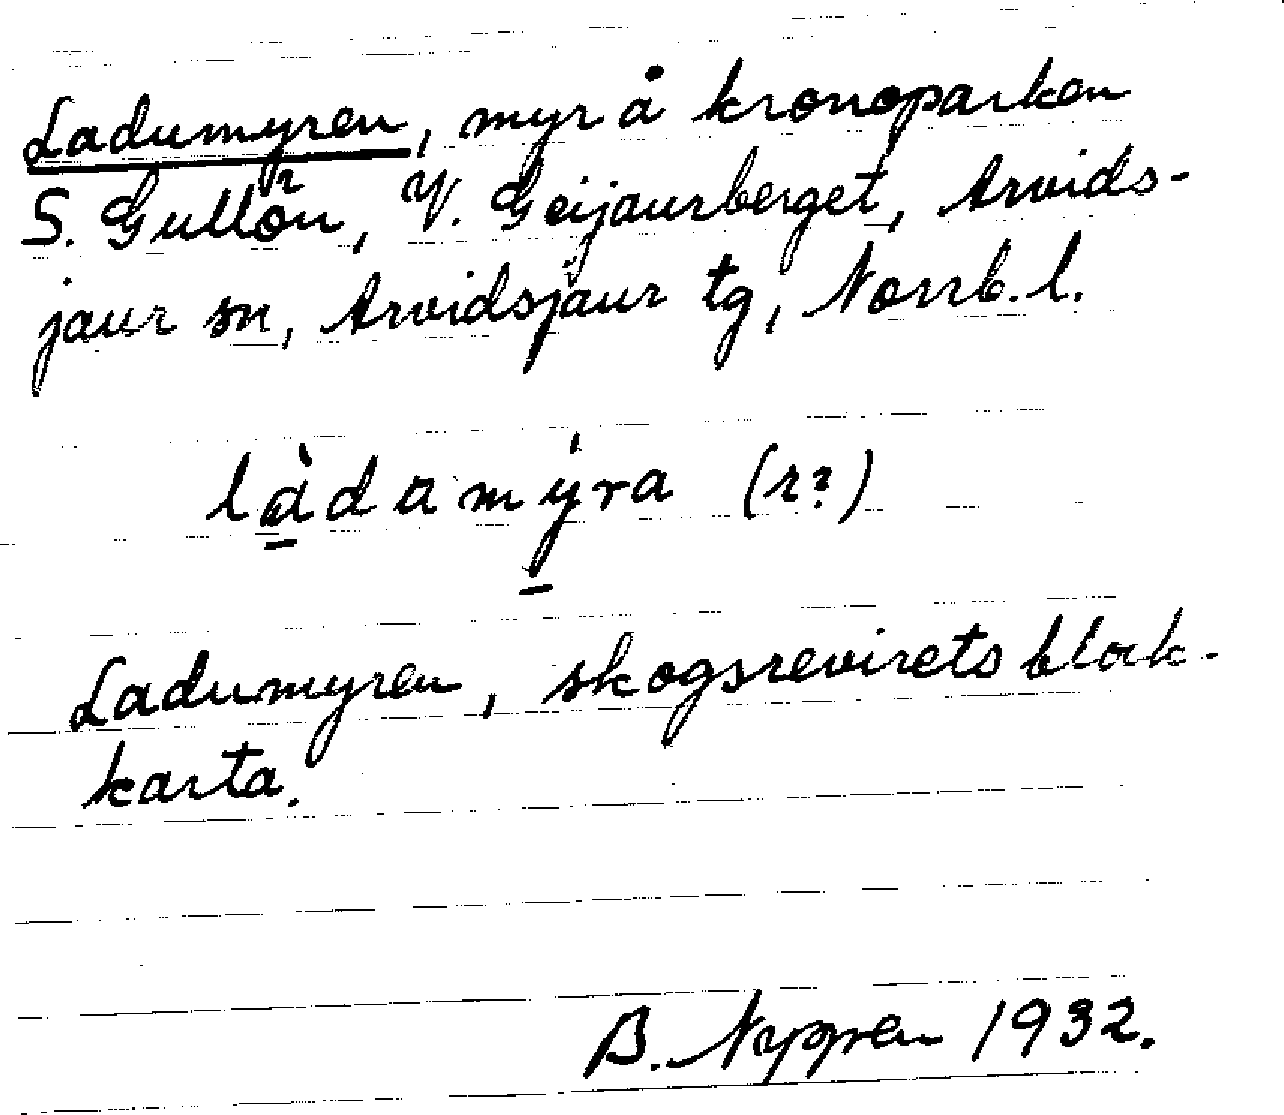 Ladumyren, myr å kronoparken
S. Gullön, V. Geijaurberget, Arvids-
jaur sn, Arvidsjaur tg, Norrb. l.
là̱damý̱ra (r?)
Ladumyren, skogsrevirets block-
karta.
B. 1932.